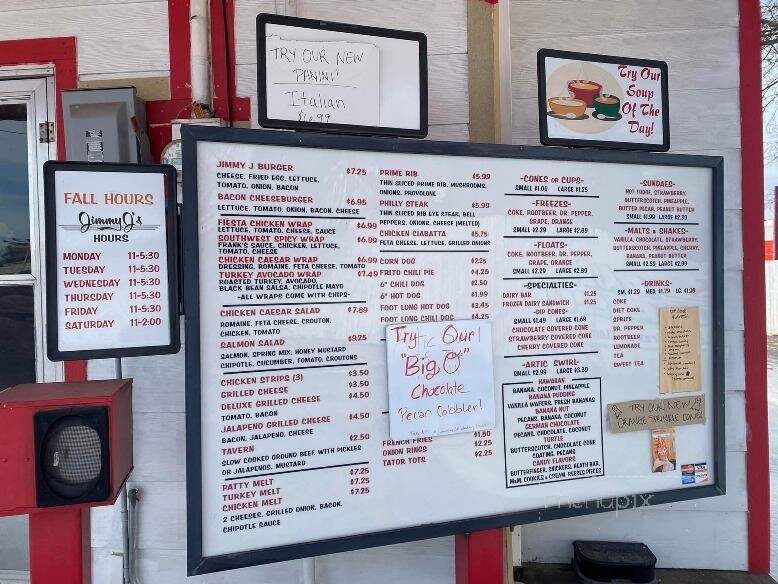 TRY OUR NEW
PANINI!
Italian
Try Our
Soup
Of The
Day!
FALL HOURS
Jimmy J's
HOURS
MONDAY 11-5:30
TUESDAY 11-5:30
WEDNESDAY 11-5:30
THURSDAY 11-5:30
FRIDAY 11-5:30
SATURDAY 11-2:00
JIMMY J BURGER $7.25
CHEESE, FRIED EGG, LETTUCE,
TOMATO, ONION, BACON
BACON CHEESEBURGER $6.95
LETTUCE, TOMATO, ONION, BACON, CHEESE
FIESTA CHICKEN WRAP $6.99
LETTUCE, TOMATO, CHEESE, SAUCE
SOUTHWEST SPICY WRAP $6.99
FRANK'S SAUCE, CHICKEN, LETTUCE,
TOMATO, CHEESE
CHICKEN CAESAR WRAP $6.99
DRESSING, ROMAINE, FETA CHEESE, TOMATO
TURKEY AVOCADO WRAP $7.49
ROASTED TURKEY, AVOCADO,
BLACK BEAN SALSA, CHIPOTLE MAYO
-ALL WRAPS COME WITH CHIPS-
CHICKEN CAESAR SALAD $7.89
ROMAINE, FETA CHEESE, CROUTON,
CHICKEN, TOMATO
SALMON SALAD $9.25
SALMON, SPRING MIX, HONEY MUSTARD
CHIPOTLE, CUCUMBER, TOMATO, CROUTONS
CHICKEN STRIPS (3) $3.50
GRILLED CHEESE $3.50
DELUXE GRILLED CHEESE $4.50
TOMATO, BACON
JALAPENO GRILLED CHEESE $4.50
BACON, JALAPENO, CHEESE
TAVERN $2.50
SLOW COOKED GROUND BEEF, WITH PICKLES
OR JALAPENOS, MUSTARD
PATTY MELT $7.25
TURKEY MELT $7.25
CHICKEN MELT $7.25
2 CHEESES, GRILLED ONION, BACON,
CHIPOTLE SAUCE
PRIME RIB $5.99
THIN SLICED PRIME RIB, MUSHROOMS,
ONIONS, PROVOLONE
PHILLY STEAK $5.99
THIN SLICED RIB EYE STEAK, BELL
PEPPERS, ONIONS, CHEESE (MELTED)
CHICKEN CIABATTA $5.75
FETA CHEESE, LETTUCE, GRILLED ONIONS
CORN DOG $2.25
FRITO CHILI PIE $4.25
6" CHILI DOG $2.50
6" HOT DOG $1.99
FOOT LONG HOT DOG $3.45
FOOT LONG CHILI DOG $4.25
Try Our!
"Big O"
Chocolate
Pecan Cobbler!
FRENCH FRIES $1.50
ONION RINGS $2.25
TATOR TOTS $2.25
-CONES OR CUPS-
SMALL $1.00 LARGE $1.25
-FREEZES-
COKE, ROOTBEER, DR. PEPPER,
GRAPE, ORANGE
SMALL $2.29 LARGE $2.89
-FLOATS-
COKE, ROOTBEER, DR. PEPPER,
GRAPE, ORANGE
SMALL $2.29 LARGE $2.89
-SPECIALTIES-
DAIRY BAR $1.25
FROZEN DAIRY SANDWICH $1.25
-DIP CONES-
SMALL $1.49 LARGE $1.69
CHOCOLATE COVERED CONE
STRAWBERRY COVERED CONE
CHERRY COVERED CONE
-ARTIC SWIRL-
SMALL $2.99 LARGE $3.39
HAWAIIAN
BANANA, COCONUT, PINEAPPLE
BANANA PUDDING
VANILLA WAFERS, FRESH BANANAS
BANANA NUT
PECANS, BANANA, COCONUT
GERMAN CHOCOLATE
PECANS, CHOCOLATE, COCONUT
TURTLE
BUTTERSCOTCH, CHOCOLATE CONE
COATING, PECANS
CANDY FLAVORS
BUTTERFINGER, SNICKERS, HEATH BAR,
M&M, COOKIES & CREAM, REESES PIECES
-SUNDAES-
HOT FUDGE, STRAWBERRY,
BUTTERSCOTCH, PINEAPPLE,
BUTTER PECAN, PEANUT BUTTER
SMALL $1.99 LARGE $2.39
-MALTS & SHAKES-
VANILLA, CHOCOLATE, STRAWBERRY,
BUTTERSCOTCH, PINEAPPLE, CHERRY,
BANANA, PEANUT BUTTER
SMALL $2.59 LARGE $2.99
-DRINKS-
SM. $1.29 MED. $1.79 LG. $1.98
COKE
DIET COKE
SPRITE
DR. PEPPER
ROOTBEER
LEMONADE
TEA
SWEET TEA
TRY OUR NEW
ORANGE SPRINKLE CONE!
menupix